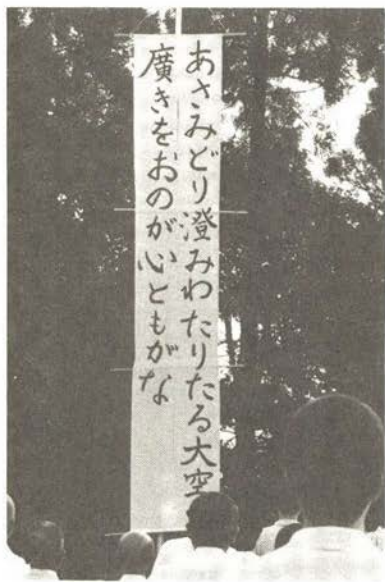 あさみどり澄みわたりたる大空
廣きをおのが心ともがな